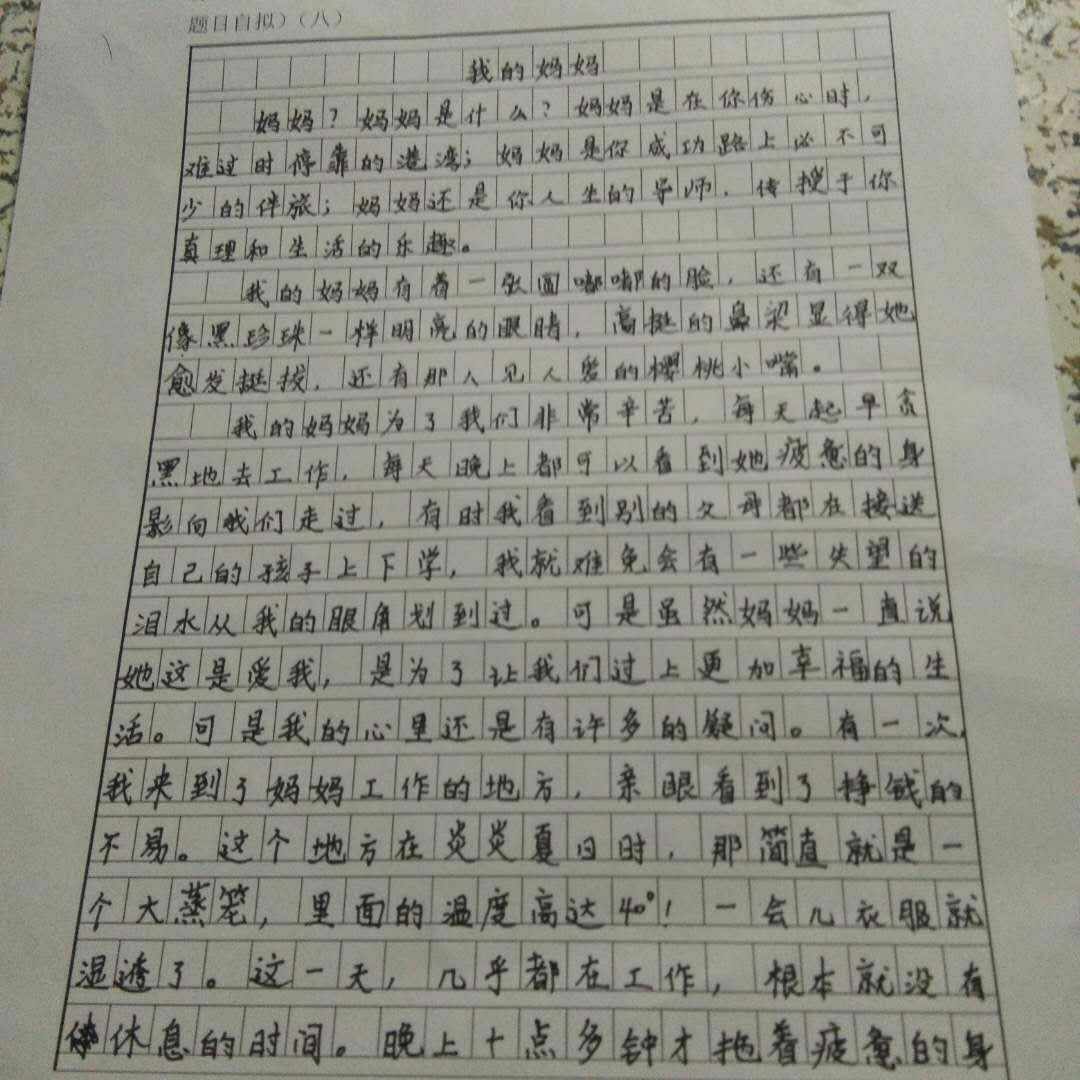 题目自拟）（八）
我的妈妈
妈妈？妈妈是什么？妈妈是在你伤心时，
难过时停靠的港湾；妈妈是你成功路上必不可
少的伴旅；妈妈还是你人生的导师，传授于你
真理和生活的乐趣。
我的妈妈有着一张圆嘟嘟的脸，还有一双
像黑珍珠一样明亮的眼睛，高挺的鼻梁显得她
愈发挺拔，还有那人见人爱的樱桃小嘴。
我的妈妈为了我们非常辛苦，每天起早贪
黑地去工作，每天晚上都可以看到她疲惫的身
影向我们走过，有时我看到别的父母都在接送
自己的孩子上下学，我就难免会有一些失望的
泪水从我的眼角划到过。可是虽然妈妈一直说
她这是爱我，是为了让我们过上更加幸福的生
活。可是我的心里还是有许多的疑问。有一次，
我来到了妈妈工作的地方，亲眼看到了挣钱的
不易。这个地方在炎炎夏日时，那简直就是一
个大蒸笼，里面的温度高达40°！一会儿衣服就
湿透了。这一天，几乎都在工作，根本就没有
休息的时间。晚上十点多钟才拖着疲惫的身